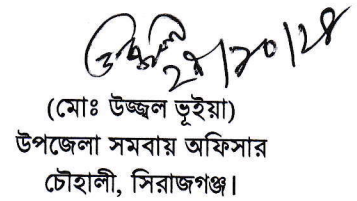 (মোঃ উজ্জ্বল ভূইয়া)
উপজেলা সমবায় অফিসার
চৌহালী, সিরাজগঞ্জ।